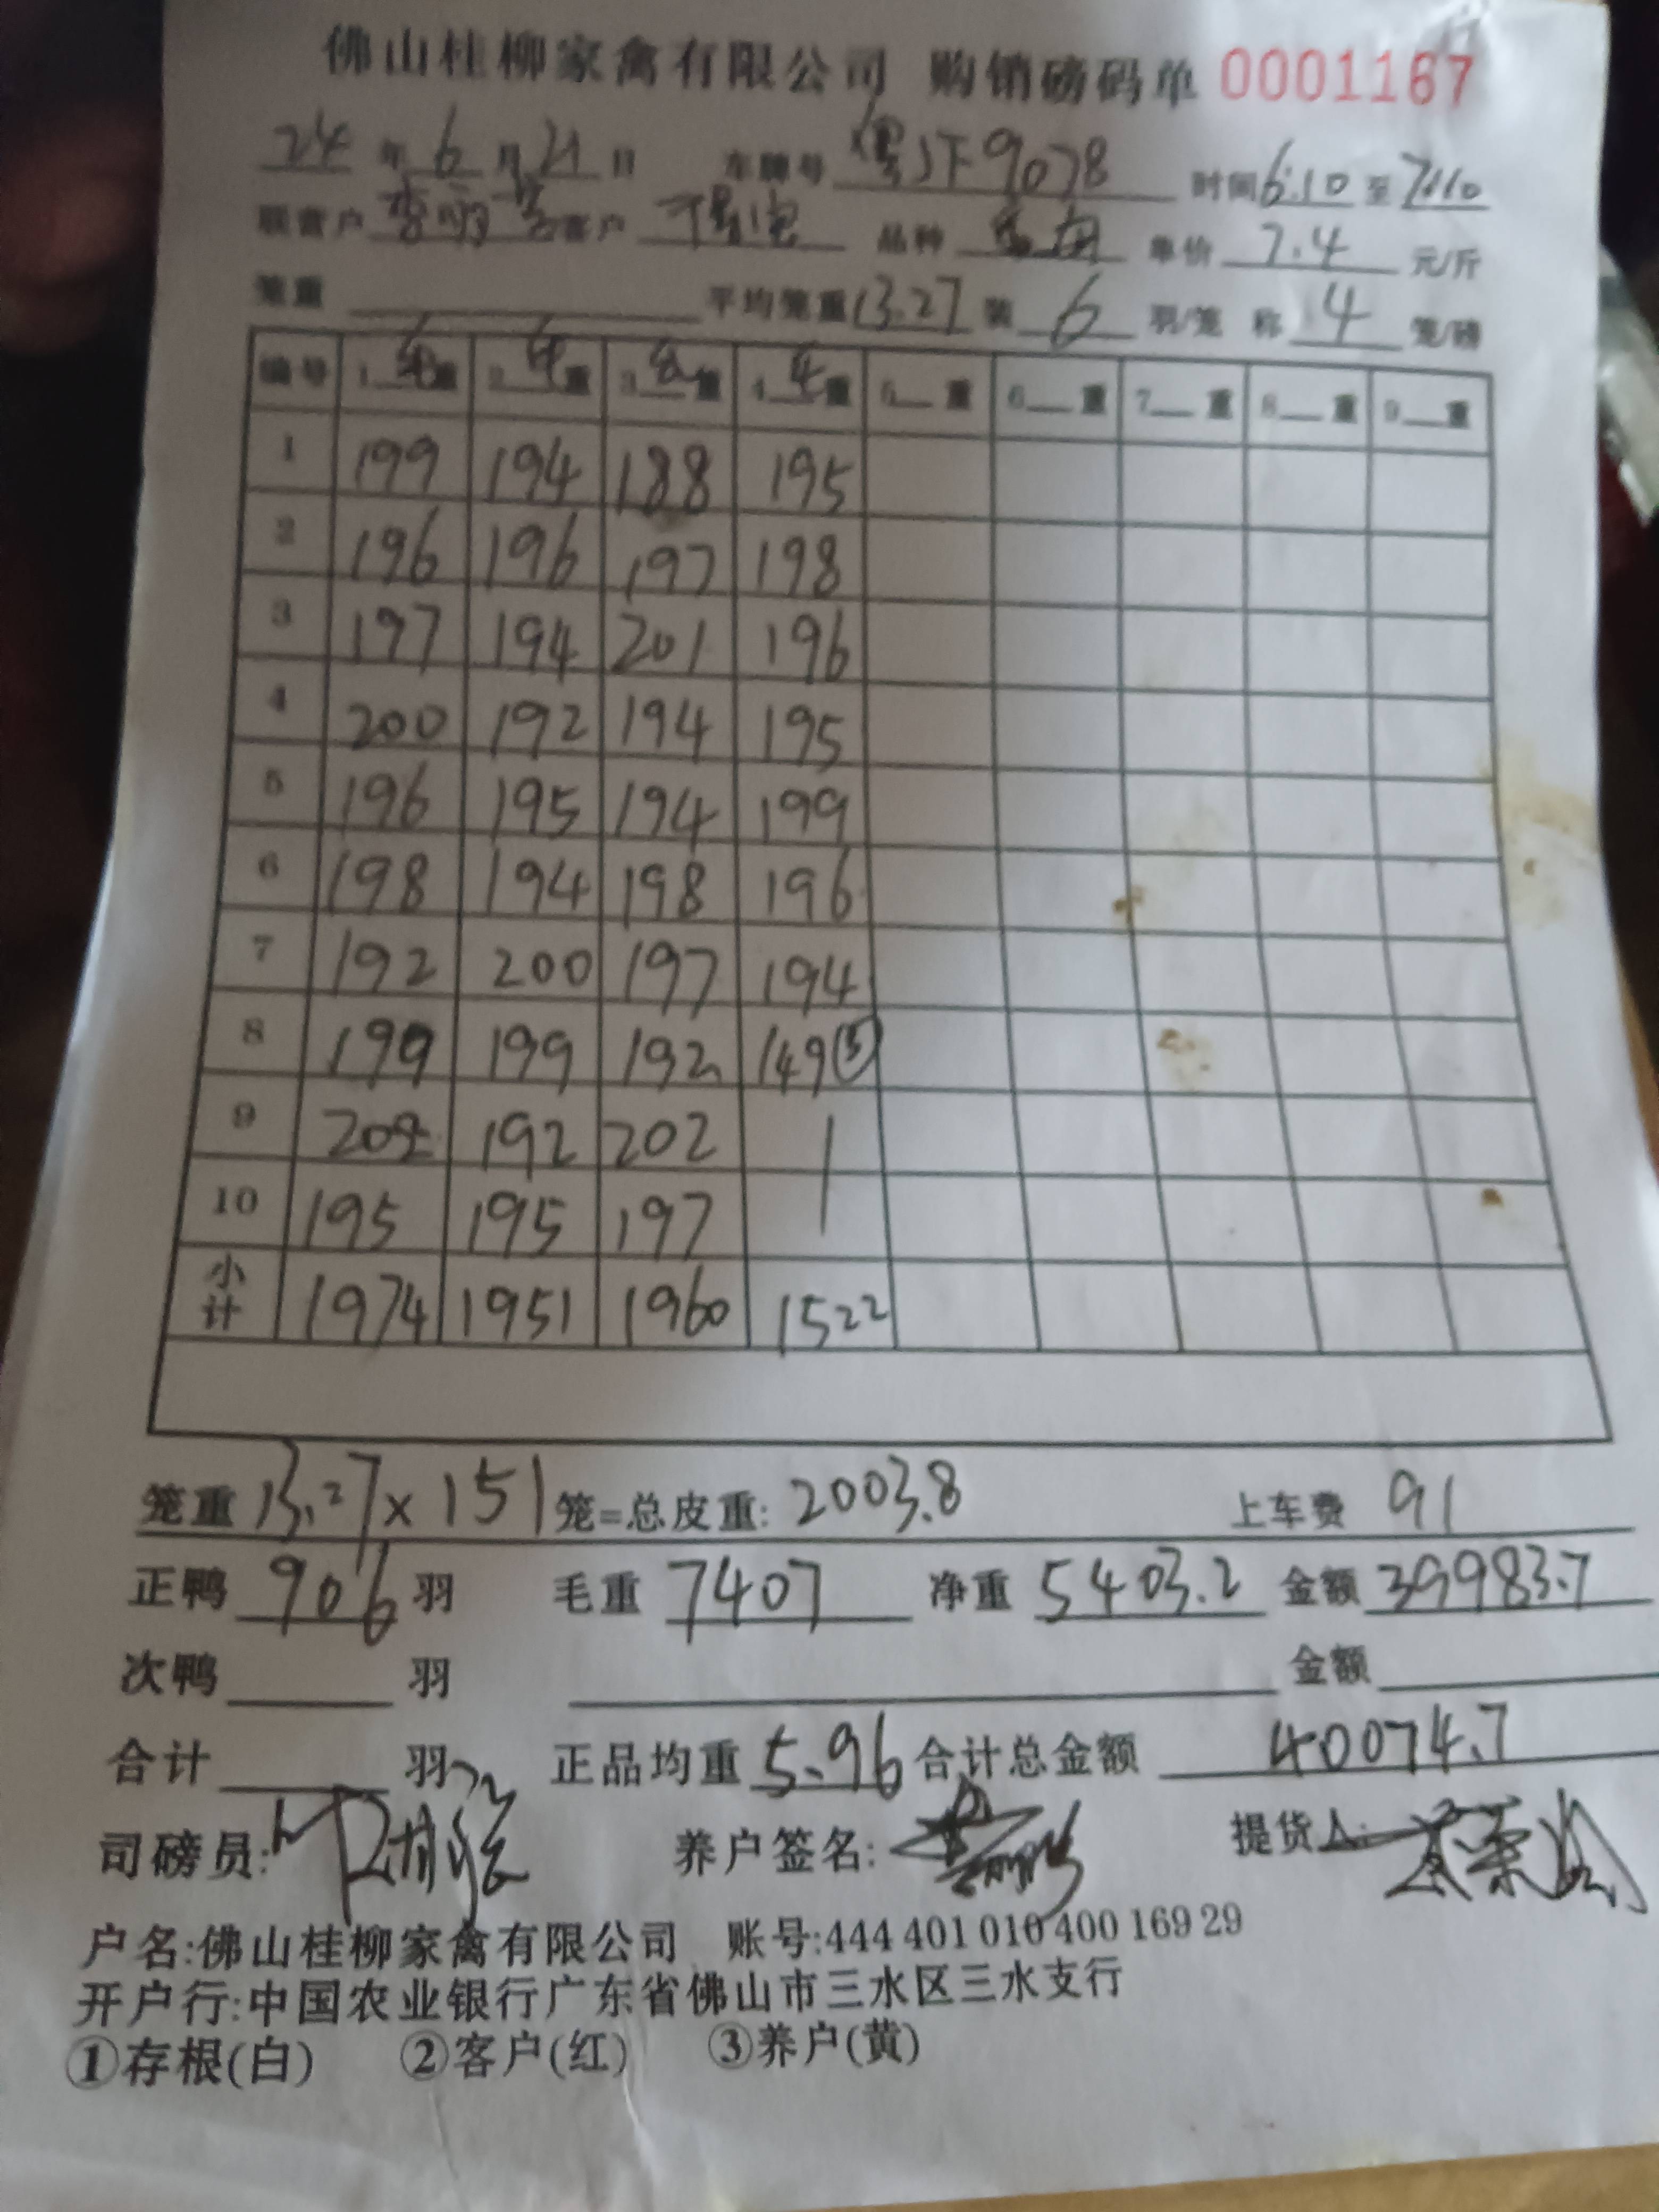 佛山桂柳家禽有限公司 购销磅码单 0001167
24 年 6 月 21 日 车牌号 粤JF9078 时间 6:10 至 7:10
联营户 客户 品种 单价 7.4 元/斤
笼重 平均笼重 13.27 装 6 羽/笼 称 4 笼/磅
编号 1 毛重 2 毛重 3 毛重 4 毛重 5 重 6 重 7 重 8 重 9 重
1 199 194 188 195
2 196 196 197 198
3 197 194 201 196
4 200 192 194 195
5 196 195 194 199
6 198 194 198 196
7 192 200 197 194
8 199 199 192 149③
9 202 192 202
10 195 195 197
小计 1974 1951 1960 1522
笼重 13.27 × 151 笼=总皮重: 2003.8 上车费 91
正鸭 906 羽 毛重 7407 净重 5403.2 金额 39983.7
次鸭 羽 金额
合计 羽 正品均重 5.96 合计总金额 40074.7
司磅员: 养户签名: 提货人:
户名:佛山桂柳家禽有限公司 账号:444 401 010 400 169 29
开户行:中国农业银行广东省佛山市三水区三水支行
①存根(白) ②客户(红) ③养户(黄)